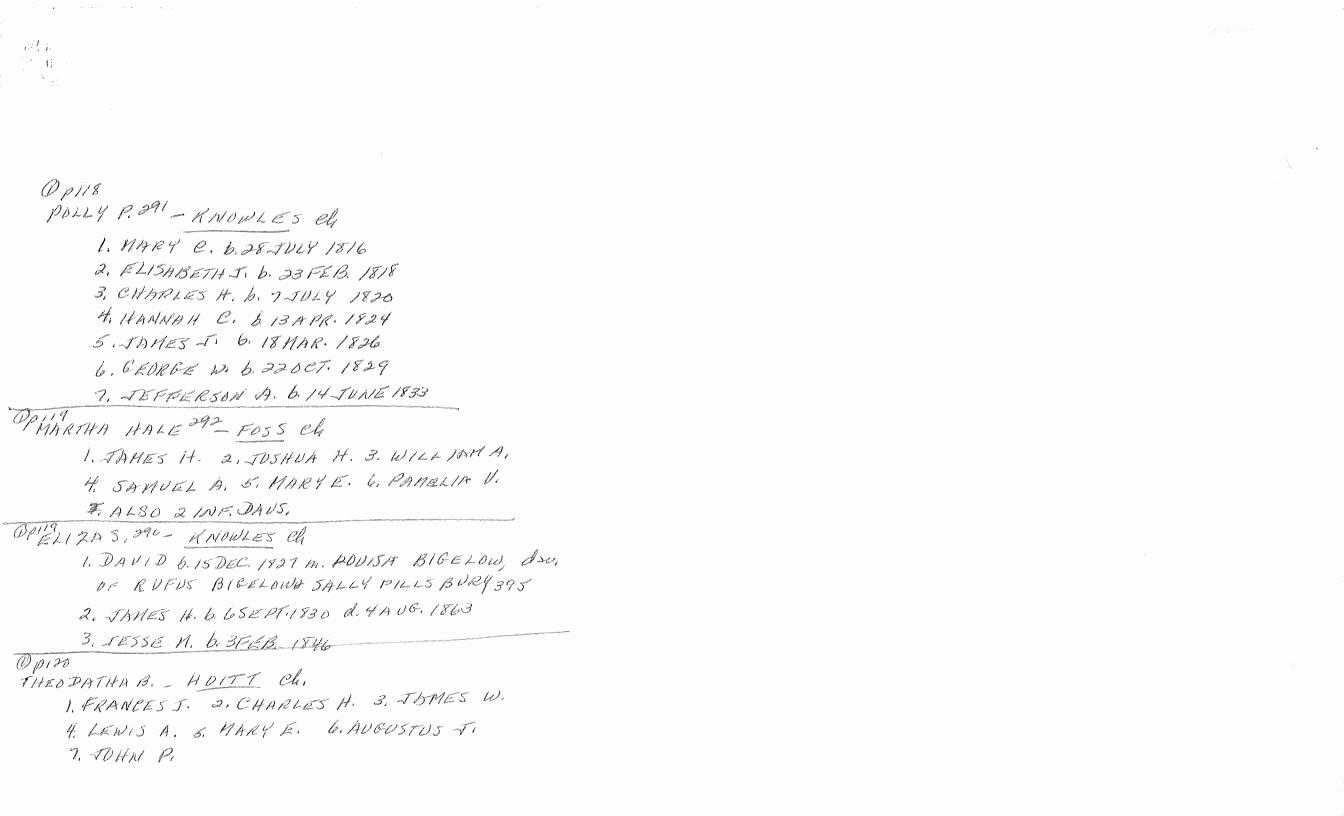 ① p118
POLLY P. 291 - KNOWLES ch
1. MARY C. b. 28 JULY 1816
2. ELISABETH J. b. 23 FEB. 1818
3. CHARLES H. b. 7 JULY 1820
4. HANNAH C. b 13 APR. 1824
5. JAMES J. b. 18 MAR. 1826
6. GEORGE W. b. 22 OCT. 1829
7. JEFFERSON A. b. 14 JUNE 1833
① p119
MARTHA HALE 292 - FOSS ch
1. JAMES H. 2. JOSHUA H. 3. WILLIAM A.
4. SAMUEL A. 5. MARY E. 6. PAMELIA V.
7. ALSO 2 INF. DAUS.
① p119
ELIZA S. 296 - KNOWLES ch
1. DAVID b. 15 DEC. 1827 m. LOUISA BIGELOW, dau.
OF RUFUS BIGELOW & SALLY PILLSBURY 395
2. JAMES H. b. 6 SEPT. 1830 d. 4 AUG. 1863
3. JESSE M. b. 3 FEB. 1846
① p120
THEODATHA B. - HOITT ch.
1. FRANCES J. 2. CHARLES H. 3. JAMES W.
4. LEWIS A. 5. MARY E. 6. AUGUSTUS J.
7. JOHN P.